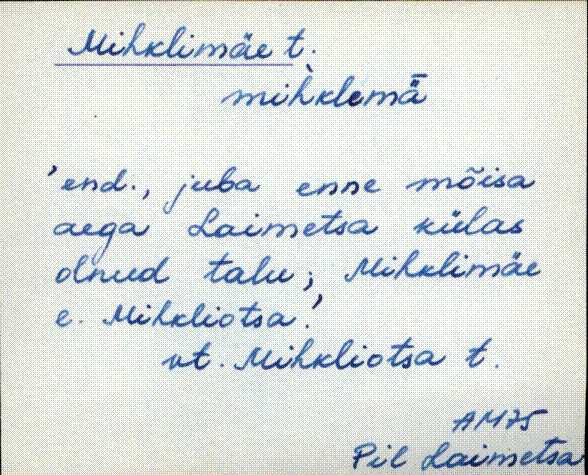 Mihklimäe t.
mìhklemǟ
'end., juba enne mõisa
aega Laimetsa külas
olnud talu; Mihklimäe
e. Mihkliotsa.'
vt. Mihkliotsa t.
AM75
Pil Laimetsa